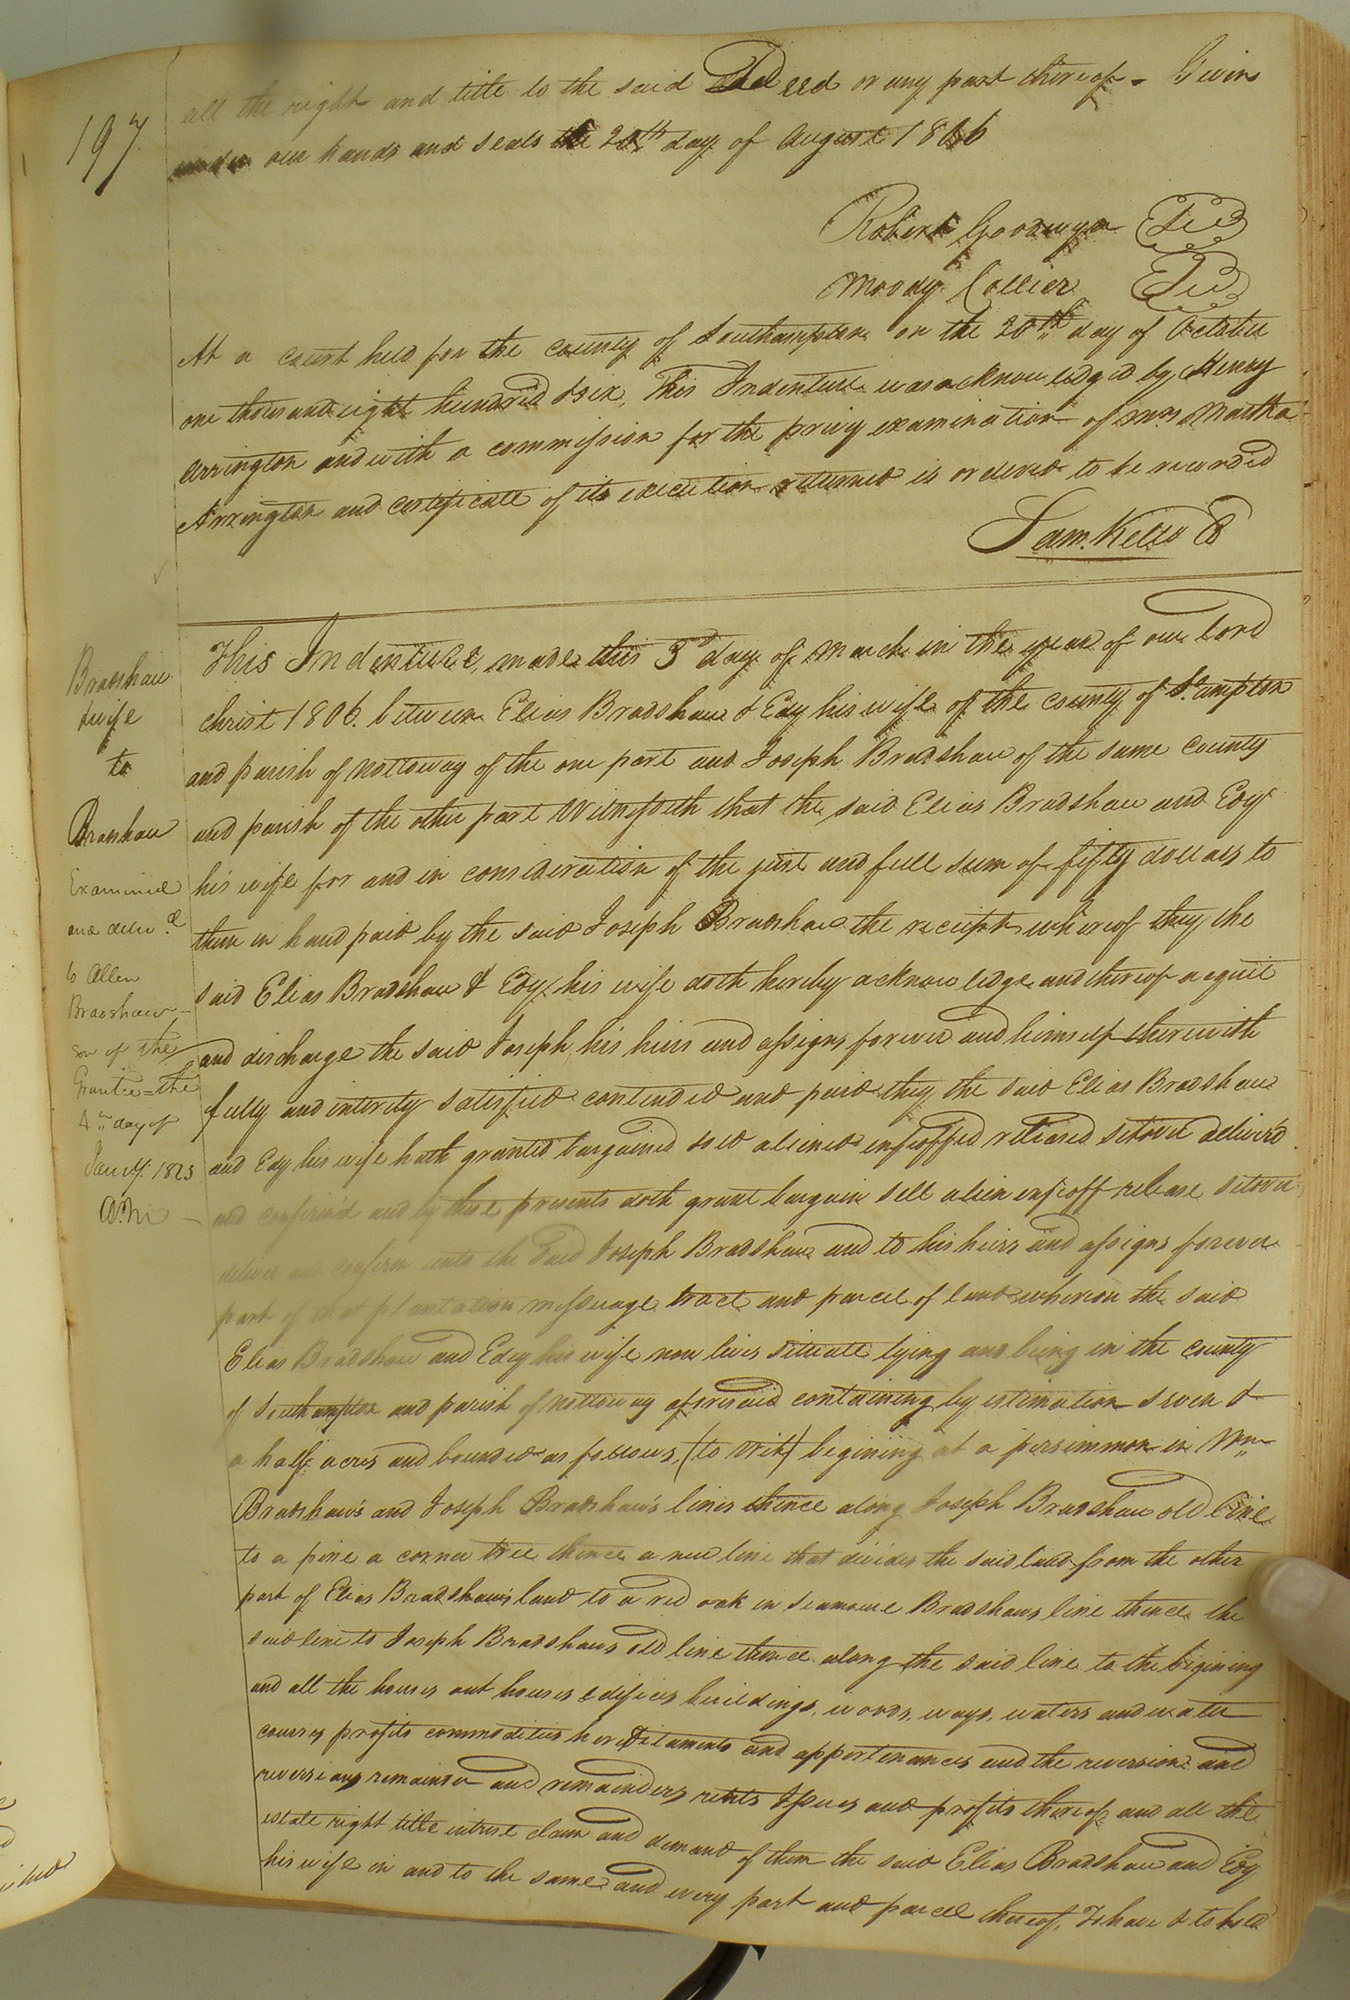 197
all the right and title to the said Deed or any part thereof. Given
under our hands and seals the 20th day of August 1806
Robert Goodwyn Seal
Moody Collier Seal
At a court held for the county of Southampton on the 20th day of October
one thousand eight hundred & six, This Indenture was acknowledged by Henry
Arrington and with a commission for the privy examination of Mrs Martha
Arrington and certificate of its execution returned is ordered to be recorded
Sam. Kello C
Bradshaw
& wife
to
Bradshaw
Examined
and deliv.d
to Allen
Bradshaw
son of the
Grantee = the
4th day of
Jany. 1823
This Indenture, made this 3d day of March in the year of our lord
christ 1806. between Elias Bradshaw & Edy his wife of the county of S.ampton
and parish of Nottoway of the one part and Joseph Bradshaw of the same county
and parish of the other part Witnesseth that the said Elias Bradshaw and Edy
his wife for and in consideration of the just and full sum of fifty dollars to
them in hand paid by the said Joseph Bradshaw the receipt whereof they the
said Elias Bradshaw & Edy his wife doth hereby acknowledge and thereof acquit
and discharge the said Joseph his heirs and assigns forever and himself therewith
fully and intirely satisfied contended and paid they the said Elias Bradshaw
and Edy his wife hath granted bargained sold aliened infeoffed released setover deliver'd
and confirm'd and by these presents doth grant bargain sell alien infeoff release setover
deliver and confirm unto the said Joseph Bradshaw and to his heirs and assigns forever
part of that plantation messuage tract and parcel of land whereon the said
Elias Bradshaw and Edey his wife now lives situate lying and being in the county
of Southampton and parish of Nottoway aforesaid containing by estimation seven &
a half acres and bounded as follows, (to wit) begining at a persimmon in Wm
Bradshaw's and Joseph Bradshaw's lines thence along Joseph Bradshaw old line
to a pine a corner tree thence a new line that divides the said land from the other
part of Elias Bradshaw's land to a red oak in Seamore Bradshaws line thence the
said line to Joseph Bradshaws old line thence along the said line to the begining
and all the houses out houses edifices buildings, woods, ways, waters and water
courses profits commodities hereditaments and appertenances and the reversion and
reversions remainder and remainders rents Issues and profits thereof and all the
estate right title intrest claim and demand of them the said Elias Bradshaw and Edy
his wife in and to the same and every part and parcel thereof, To have & to hold